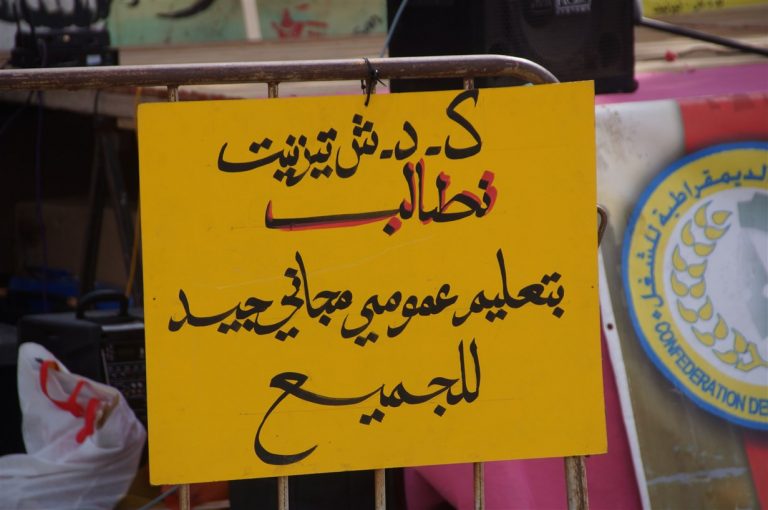 ك.د.ش تيزنيت
نطالب
بتعليم عمومي مجاني جيد
للجميع
لديمقراطية للشغل
CONFEDERATION DE